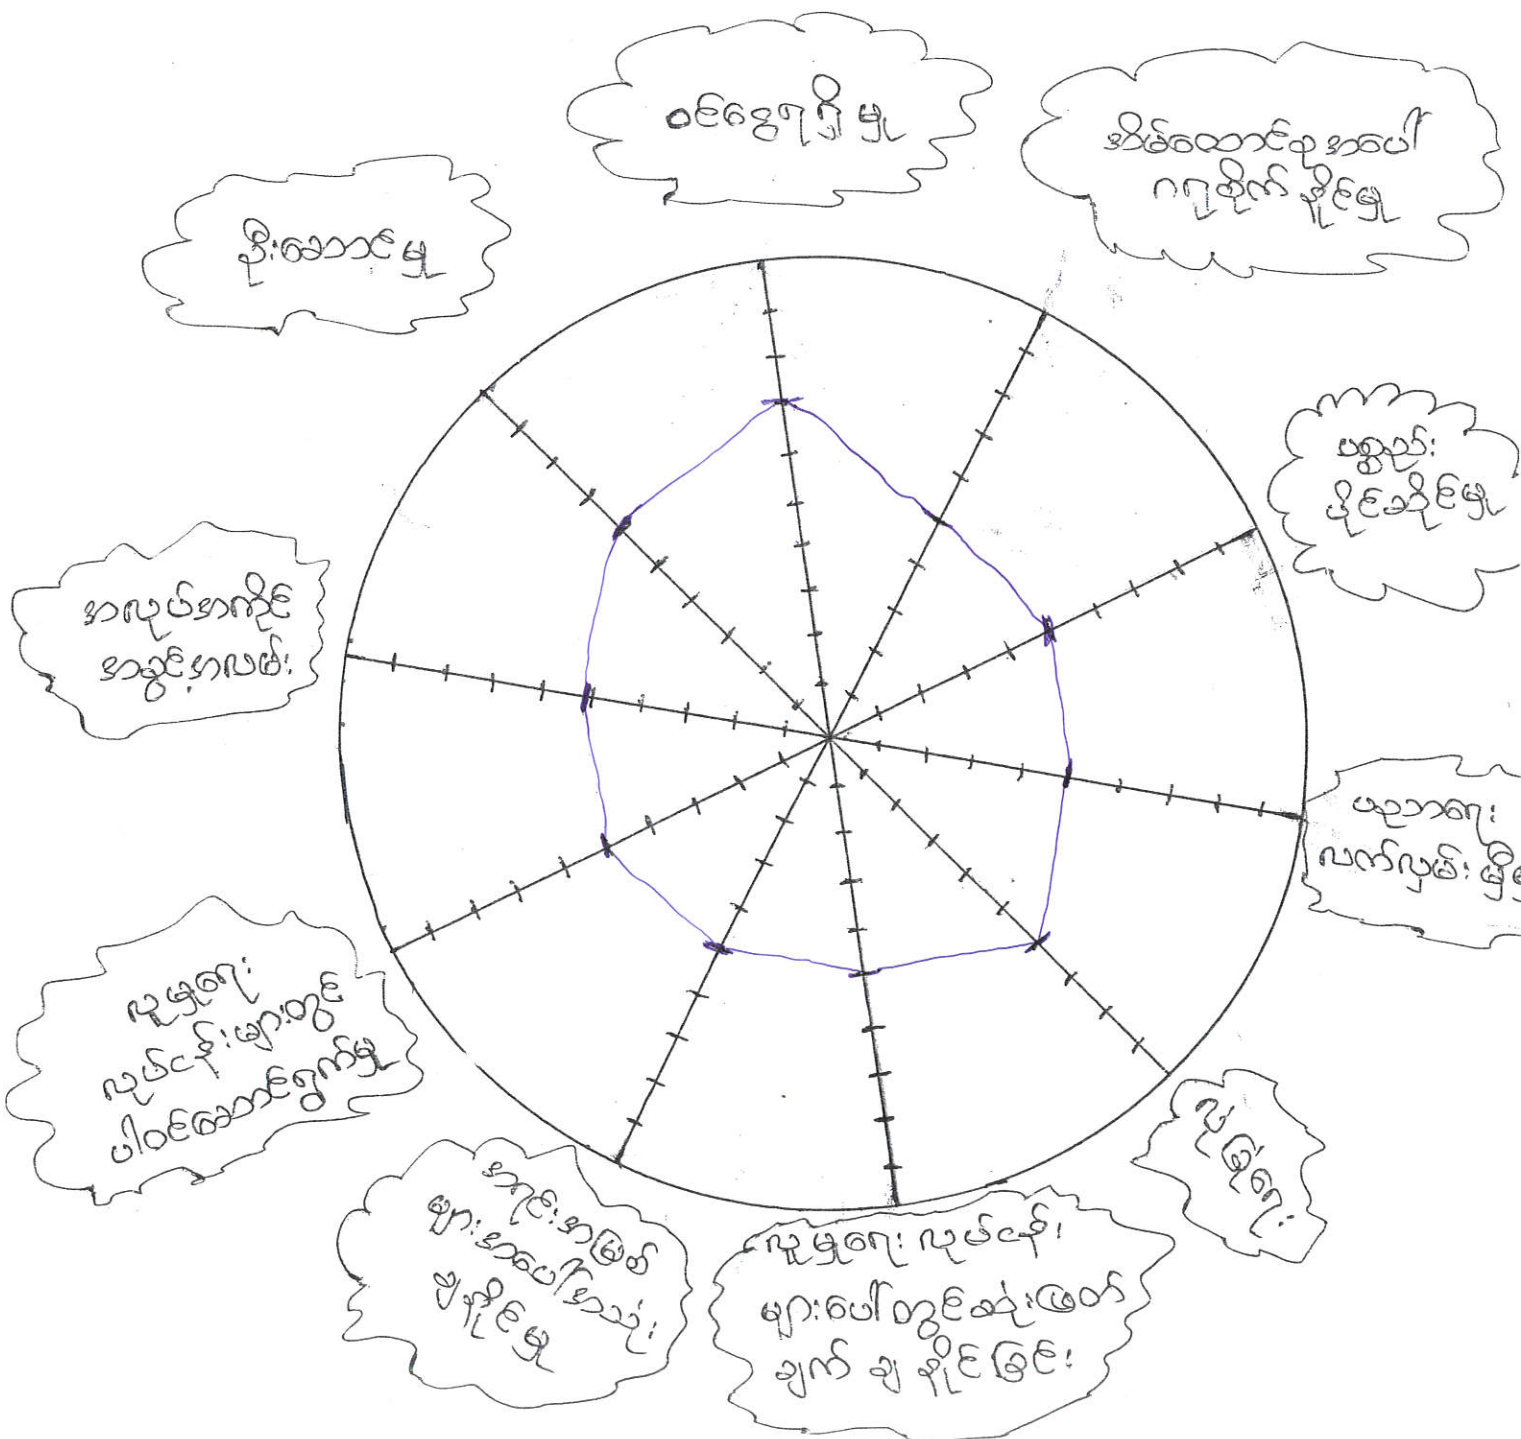 ဝင်ငွေရရှိမှု
အိမ်ထောင်စုအပေါ်
ဂရုစိုက်နိုင်မှု
ပစ္စည်း
ပိုင်ဆိုင်မှု
ပညာရေး
လက်လှမ်းမှီ
လုံခြုံရေး
လူမှုရေး လုပ်ငန်း
များပေါ်တွင်ဆုံးဖြတ်
ချက် ချ နိုင်ခြင်း
အရင်းအမြစ်
များအပေါ်အသုံး
ချနိုင်မှု
လူမှုရေး
လုပ်ငန်းများတွင်
ပါဝင်ဆောင်ရွက်မှု
အလုပ်အကိုင်
အခွင့်အလမ်း
ဦးဆောင်မှု